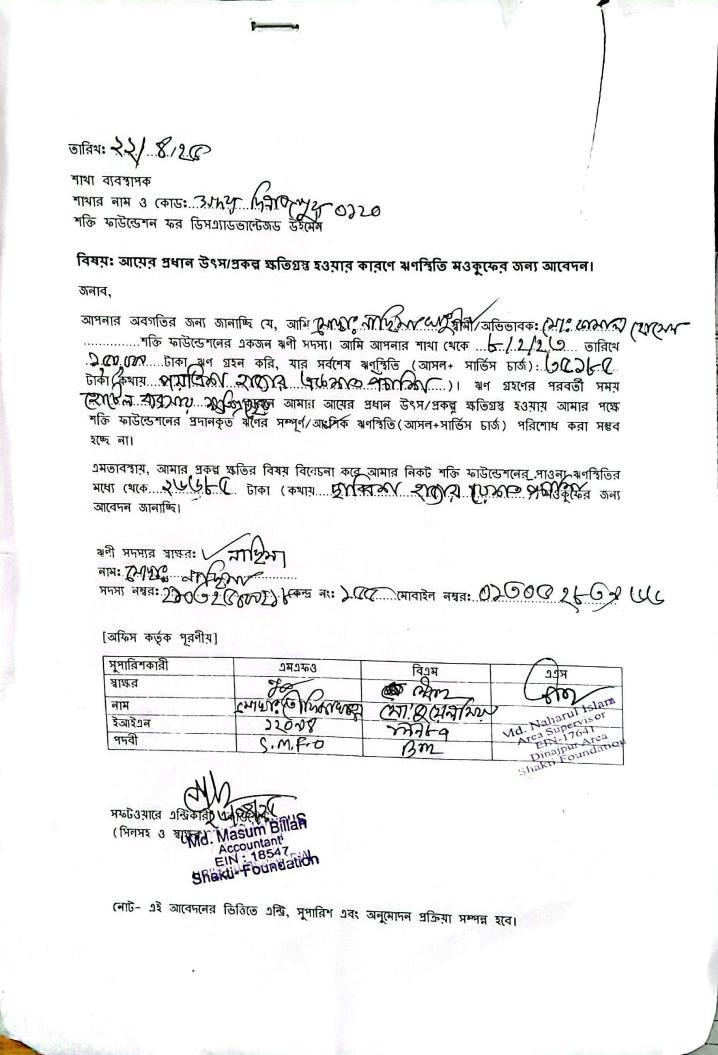 তারিখ: ২২/৪/২৫
শাখা ব্যবস্থাপক
শাখার নাম ও কোডঃ...সদর দিনাজপুর ০১২০
শক্তি ফাউন্ডেশন ফর ডিসএ্যাডভান্টেজড উইমেন
বিষয়ঃ আয়ের প্রধান উৎস/প্রকল্প ক্ষতিগ্রস্থ হওয়ার কারণে ঋণস্থিতি মওকুফের জন্য আবেদন।
জনাব,
আপনার অবগতির জন্য জানাচ্ছি যে, আমি মোছাঃ নাছিমা স্বামী/অভিভাবক: মোঃ কামাল হোসেন
শক্তি ফাউন্ডেশনের একজন ঋণী সদস্য। আমি আপনার শাখা থেকে ৮/২/২৩ তারিখে
টাকা ঋণ গ্রহন করি, যার সর্বশেষ ঋণস্থিতি (আসল+ সার্ভিস চার্জ): ৩৫১৮৫
টাকা (কথায় পয়ত্রিশ হাজার একশত পচাশি)। ঋণ গ্রহণের পরবর্তী সময়
হোটেল ব্যবসায় আমার আয়ের প্রধান উৎস/প্রকল্প ক্ষতিগ্রস্থ হওয়ায় আমার পক্ষে
শক্তি ফাউন্ডেশনের প্রদানকৃত ঋণের সম্পূর্ণ/আংশিক ঋণস্থিতি (আসল+সার্ভিস চার্জ) পরিশোধ করা সম্ভব
হচ্ছে না।
এমতাবস্থায়, আমার প্রকল্প ক্ষতির বিষয় বিবেচনা করে আমার নিকট শক্তি ফাউন্ডেশনের পাওনা ঋণস্থিতির
মধ্যে থেকে ২৬৬৮৫ টাকা (কথায় ছাব্বিশ হাজার ছয়শত পচাশি মওকুফের জন্য
আবেদন জানাচ্ছি।
ঋণী সদস্যর স্বাক্ষর: নাছিমা
নাম: মোছাঃ নাছিমা
সদস্য নম্বর: কেন্দ্র নং: ১৫৫ মোবাইল নম্বর:
[অফিস কর্তৃক পূরণীয়]
সুপারিশকারী এমএফও বিএম এএস
স্বাক্ষর
নাম
ইআইএন
পদবী S.M.F.O BM
Md. Naharul Islam
Area Supervisor
EIN-17641
Dinajpur Area
Shakti Foundation
সফটওয়ারে এন্ট্রিকারী
(সিলসহ ও স্বাক্ষর)
Md. Masum Billah
Accountant
EIN : 18547
Shakti Foundation
নোট- এই আবেদনের ভিত্তিতে এন্ট্রি, সুপারিশ এবং অনুমোদন প্রক্রিয়া সম্পন্ন হবে।